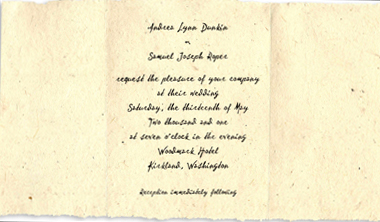 Andrea Lynn Dunkin
Samuel Joseph Roper
request the pleasure of your company
at their wedding
Saturday, the thirteenth of May
Two thousand and one
at seven o'clock in the evening
Woodmark Hotel
Kirkland, Washington
Reception immediately following